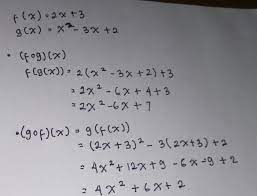 f(x)=2x+3
g(x)=x²-3x+2
• (fog)(x)
f(g(x)) = 2(x²-3x+2)+3
= 2x²-6x+4+3
= 2x²-6x+7
•(gof)(x) = g(f(x))
= (2x+3)²-3(2x+3)+2
= 4x²+12x+9-6x-9+2
= 4x²+6x+2.